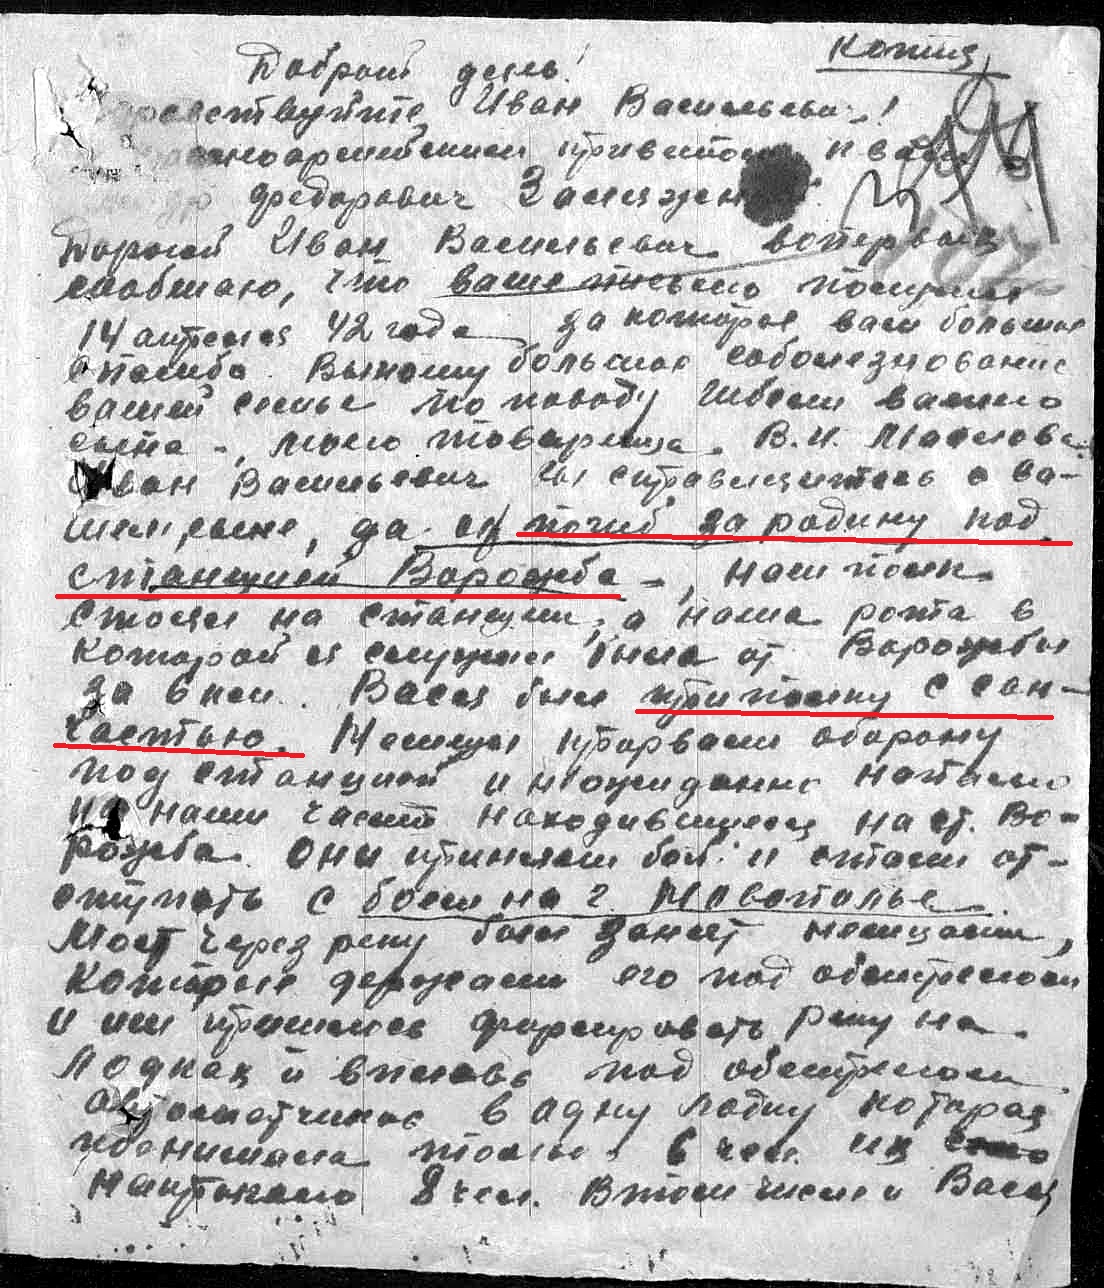 копия
Добрый день!
Здравствуйте, Иван Васильевич!
привет
Федорович
Дорогой Иван Васильевич вопервых
сообщаю, что ваше письмо получил
14 апреля 42 года за которое вам большое
спасибо. Выношу большое соболезнование
вашей семье по поводу гибели вашего
сына -, моего товарища. В.И.
Иван Васильевич Вы справляетесь о ва-
шем сыне, да он погиб за родину под
станцией Ворожба -, наш полк
стоял на станции, а наша рота в
которой я служил была от Ворожбы
за 6 км. Вася был при полку с сан-
частью. Немцы прорвали оборону
под станцией и неожиданно напали
на наши части находившиеся на ст. Во-
рожба. Они приняли бой и стали от-
ступать с боем на г.
Мост через реку был занят немцами,
которые держали его под обстрелом
и им пришлось форсировать реку на
лодках и вплавь под обстрелом
автоматчиков в одну лодку которая
только 6 чел. их
8 чел. В том числе и Вася